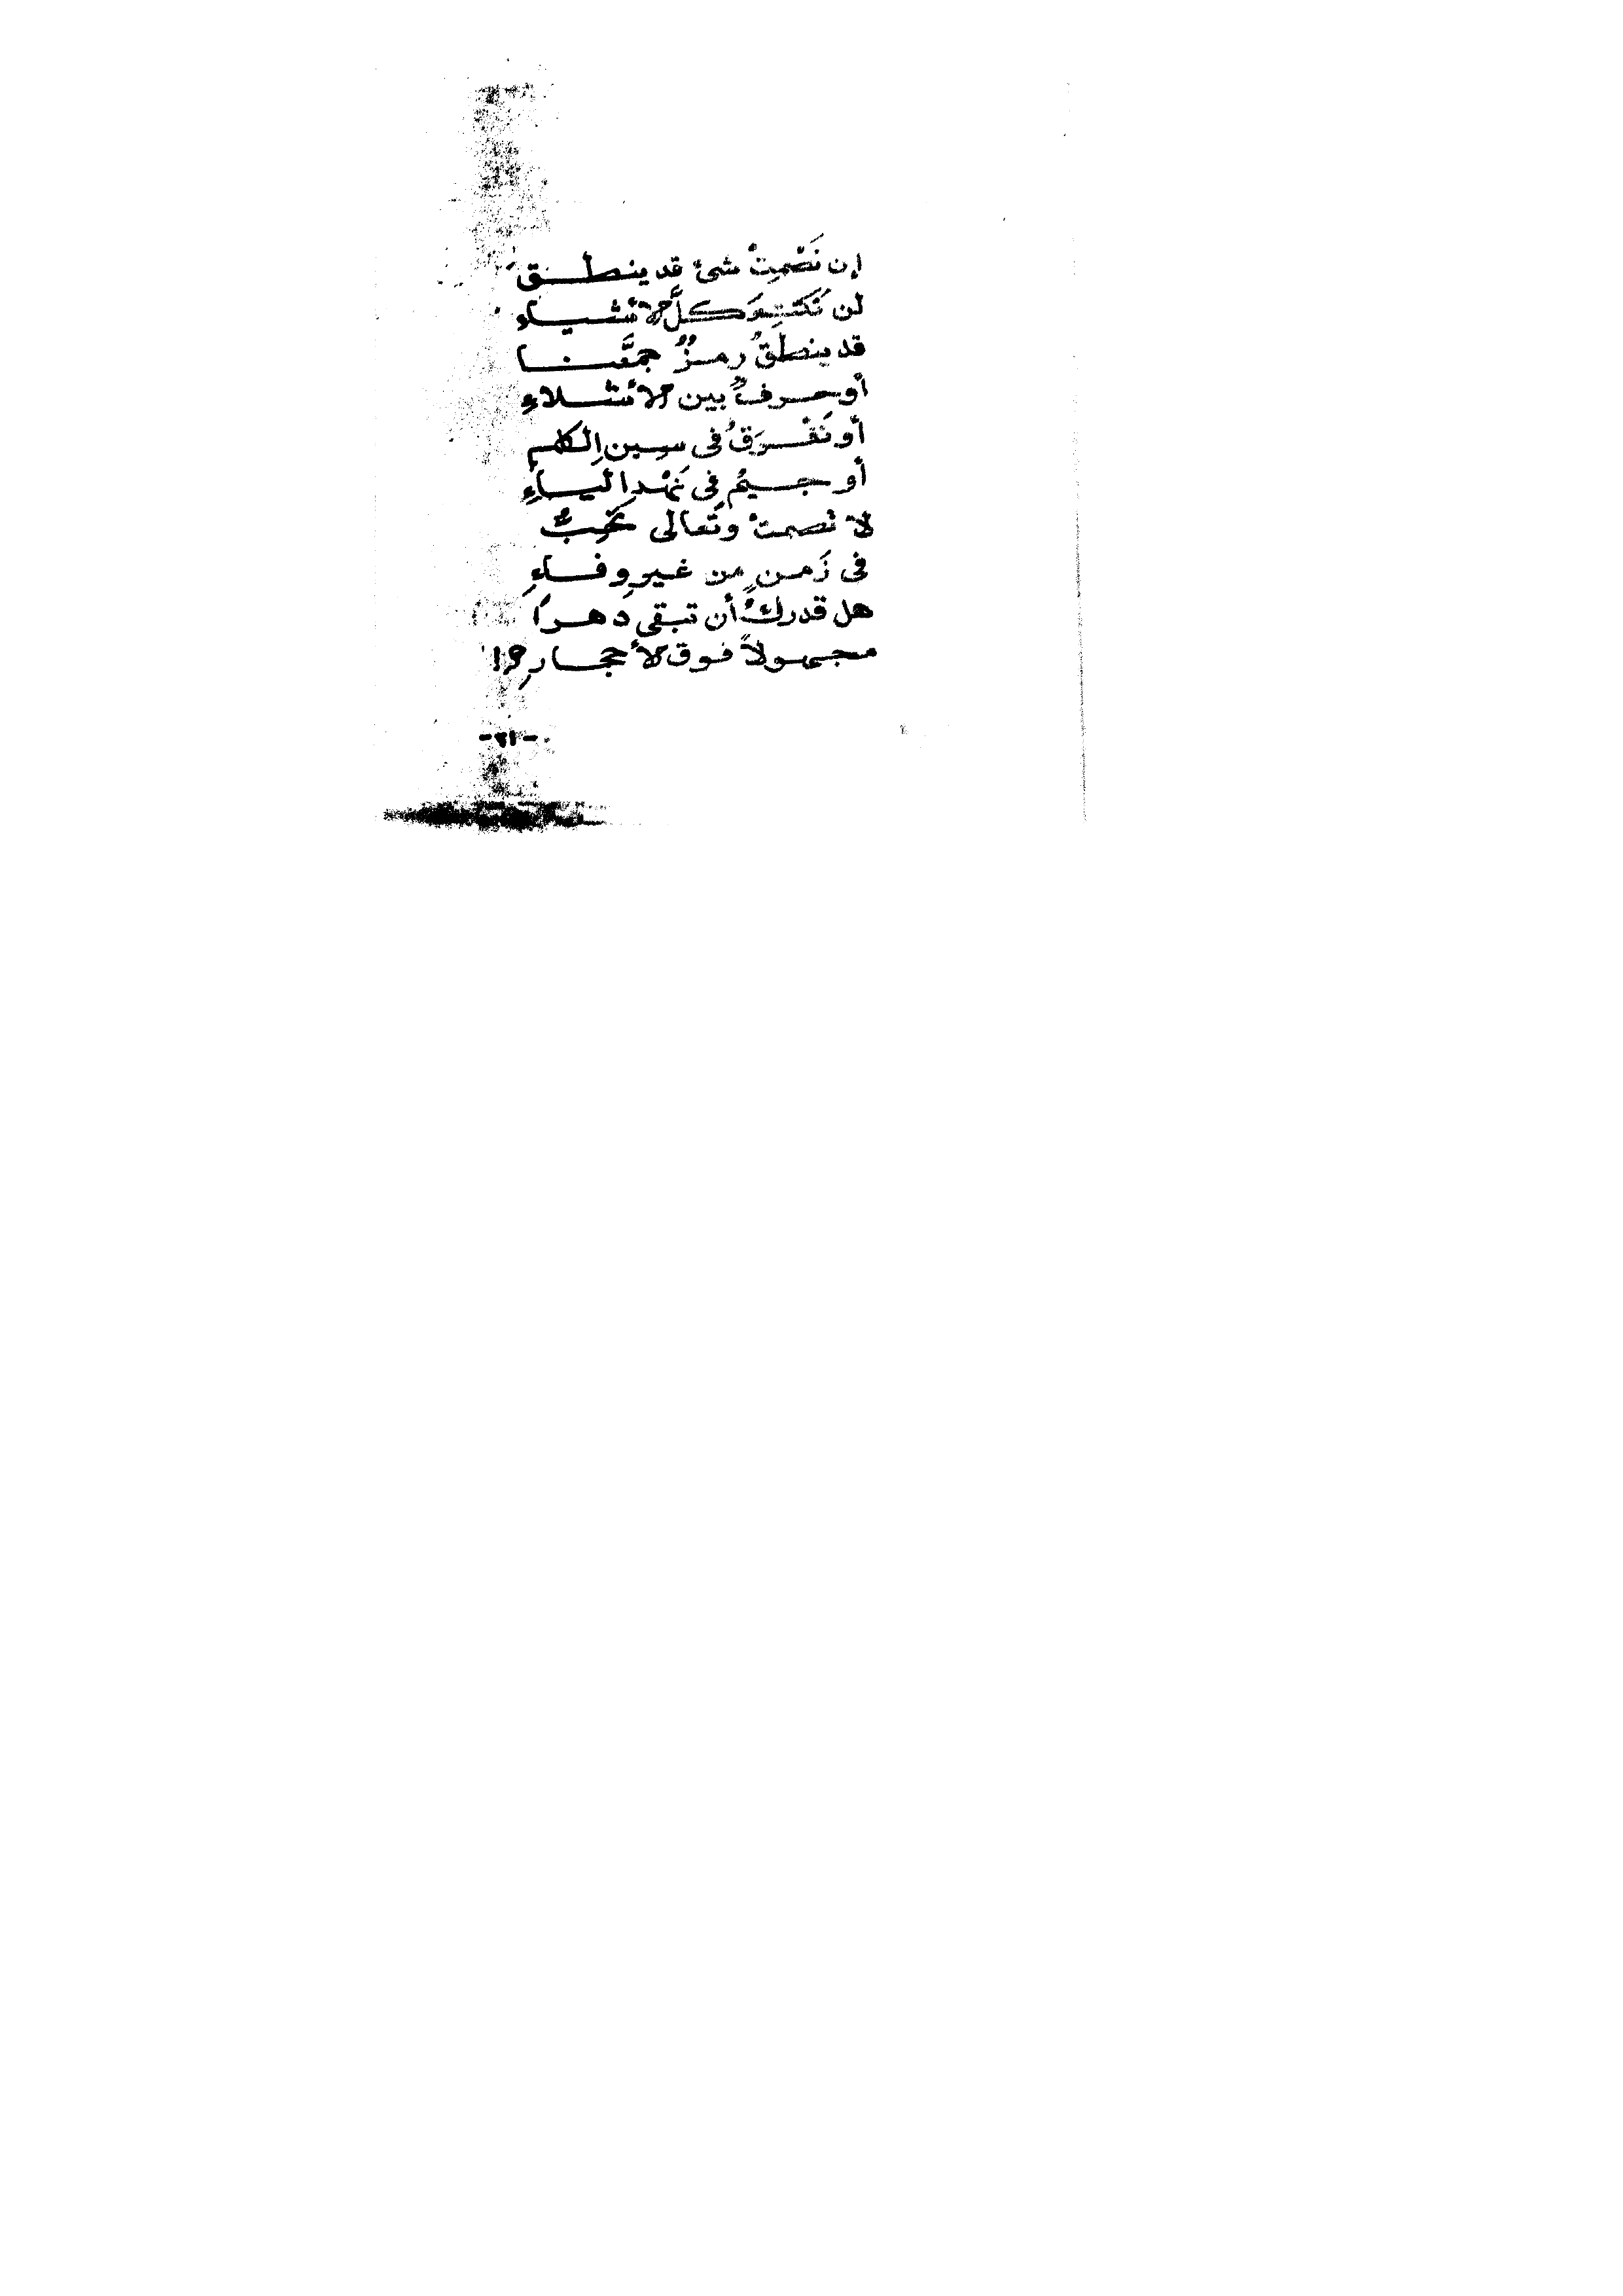 إن نَصْمِتْ شئ قد ينطلق
لن نَكتَتِمَ كلَّ الأشياء
قد ينطلقُ رمزٌ جمَّعنا
أو حرفٌ بين الأشلاءِ
أو نَغْرَقُ فى سين الكلم
أو جيمٍ فى نَهْدِ الياءِ
لا نصمتْ وتَعالى نحِبُّ
فى زَمنٍ من غيرِ وفاءِ
هل قدركُ أن تبقى دهرًا
مجهولاً فوق الأحجارِ؟!
-٢١-